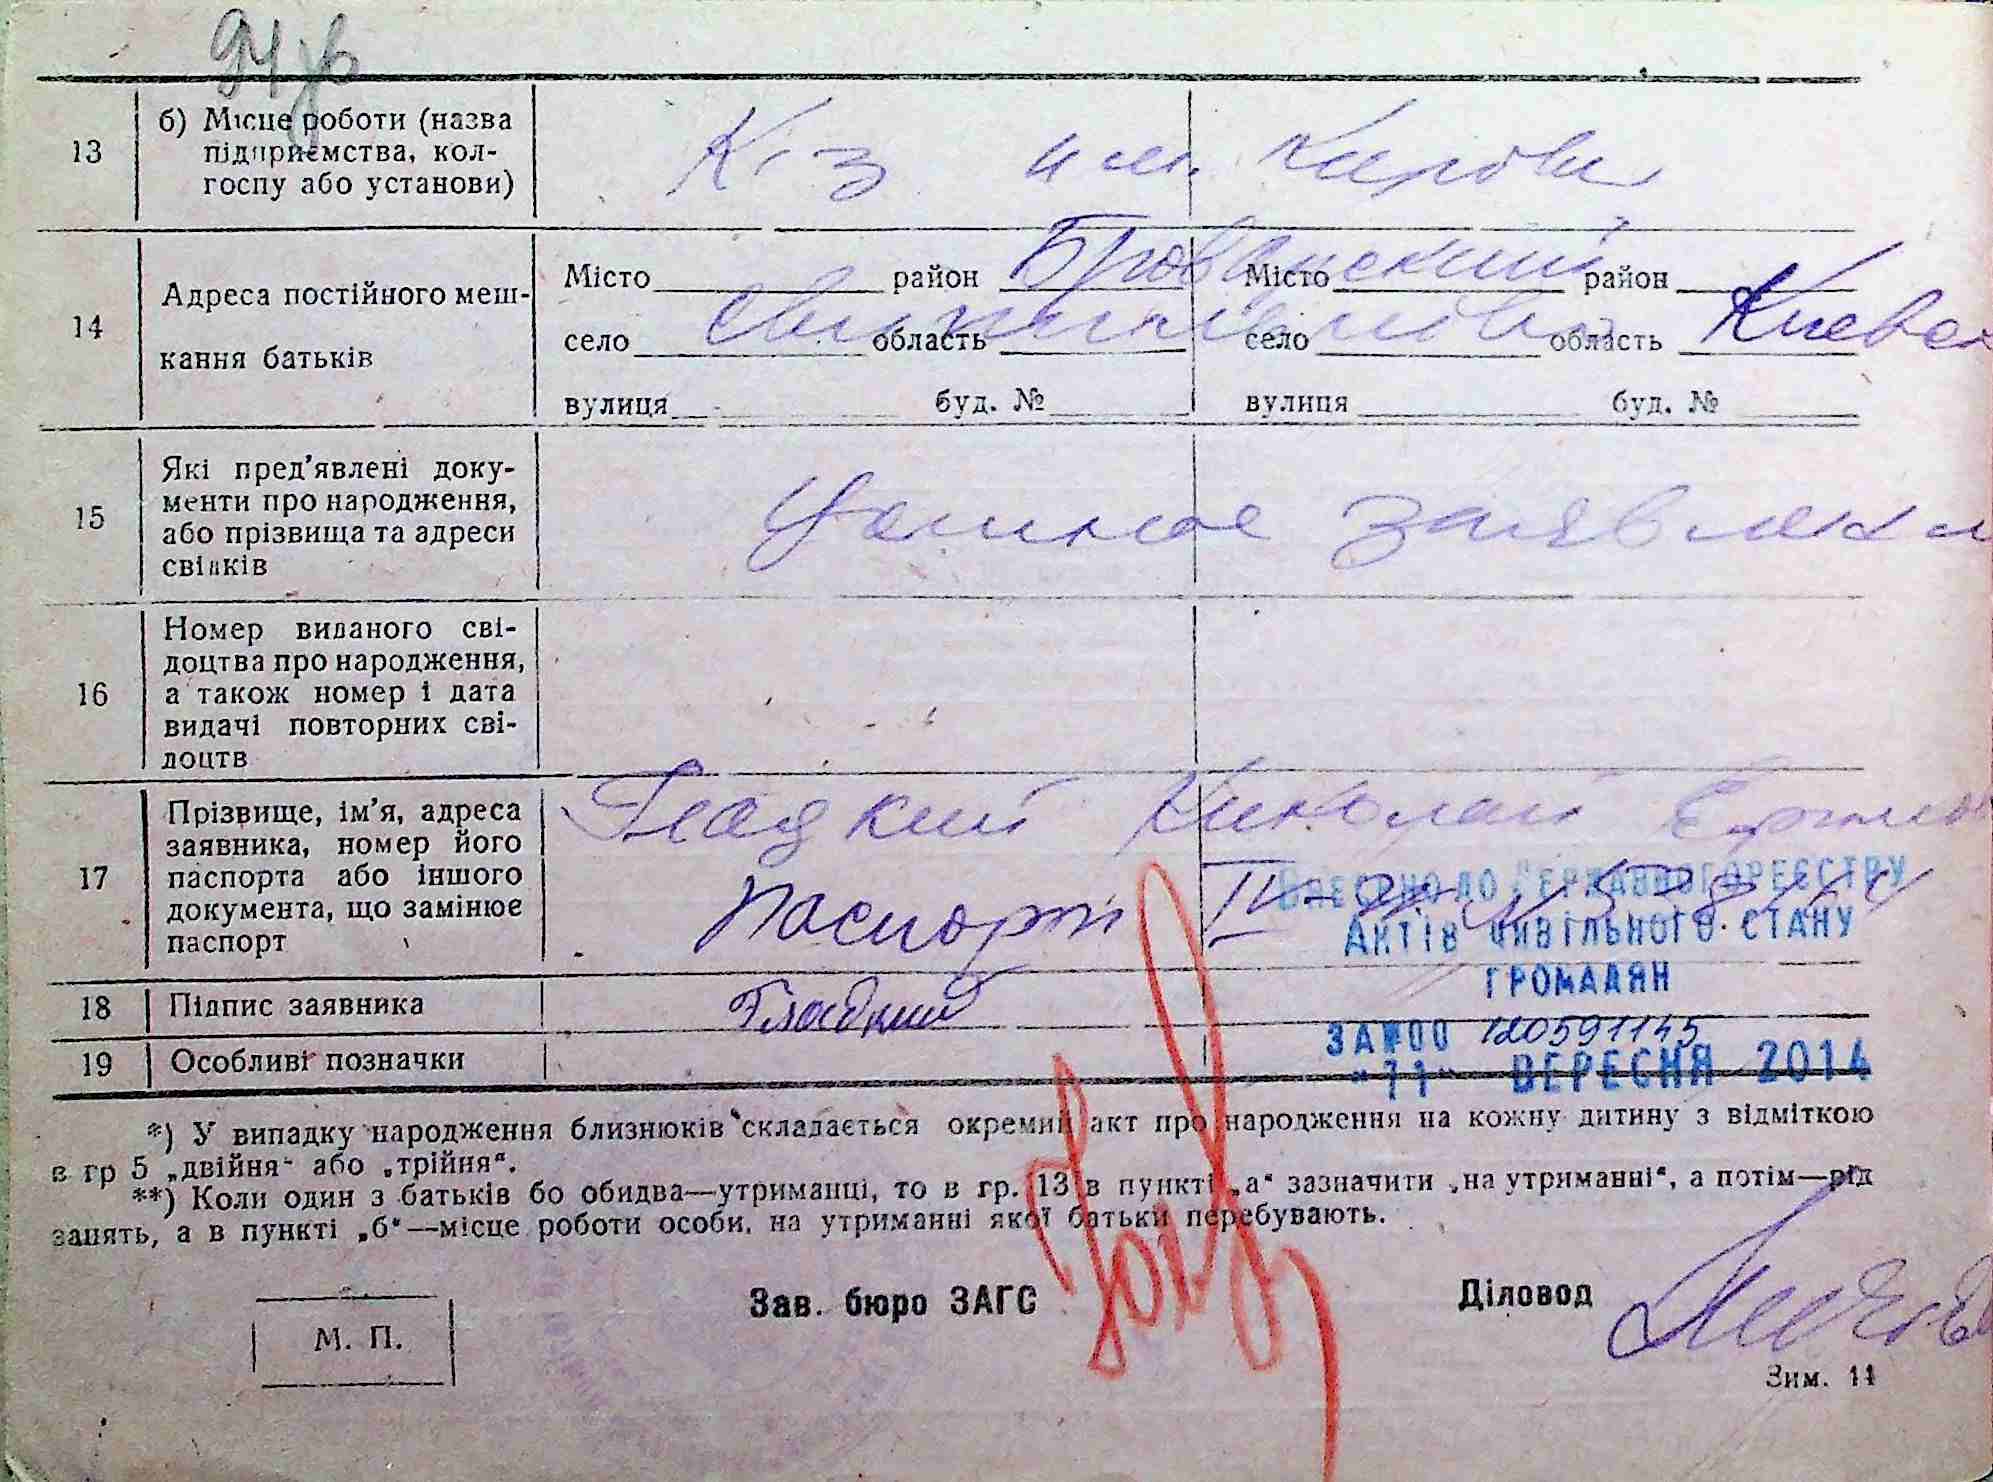 13
б) Місце роботи (назва
підприємства, кол-
госпу або установи)
К-з им. Кирова
14
Адреса постійного меш-
кання батьків
Місто район Броварский Місто район
село область село область Киевск
вулиця буд. № вулиця буд. №
15
Які пред'явлені доку-
менти про народження,
або прізвища та адреси
свідків
Устное заявлен
16
Номер виданого сві-
доцтва про народження,
а також номер і дата
видачі повторних сві-
доцтв
17
Прізвище, ім'я, адреса
заявника, номер його
паспорта або іншого
документа, що замінює
паспорт
Гладкий Николай
Паспорт
ВНЕСЕНО ДО ДЕРЖАВНОГО РЕЄСТРУ
АКТІВ ЦИВІЛЬНОГО СТАНУ
ГРОМАДЯН
18 Підпис заявника
Гладкий
ЗА №00 120591145
19 Особливі позначки
"11" ВЕРЕСНЯ 2014
*) У випадку народження близнюків складається окремий акт про народження на кожну дитину з відміткою
в гр 5 „двійня" або „трійня".
**) Коли один з батьків бо обидва—утриманці, то в гр. 13 в пункті „а" зазначити „на утриманні", а потім—рід
занять, а в пункті „б"—місце роботи особи, на утриманні якої батьки перебувають.
Зав. бюро ЗАГС
Діловод
М. П.
Зим. 11